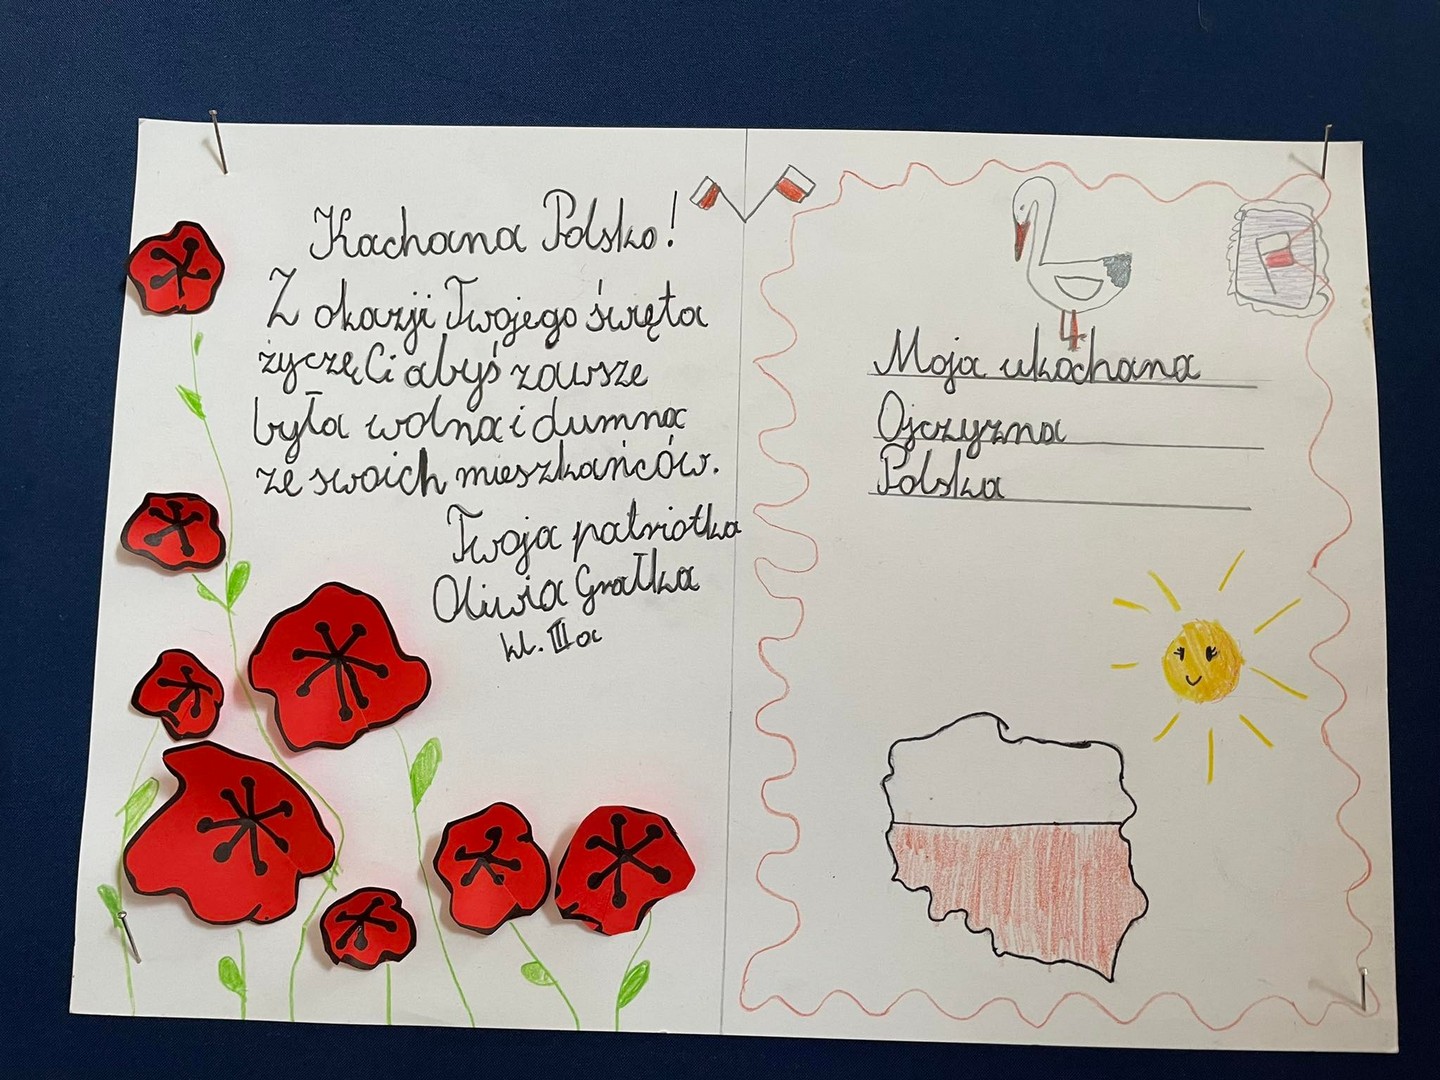 Kochana Polsko!
Z okazji Twojego święta
życzę Ci abyś zawsze
była wolna i dumna
ze swoich mieszkańców.
Twoja patriotka
Oliwia Grałka
kl. III a
Moja ukochana
Ojczyzna
Polska